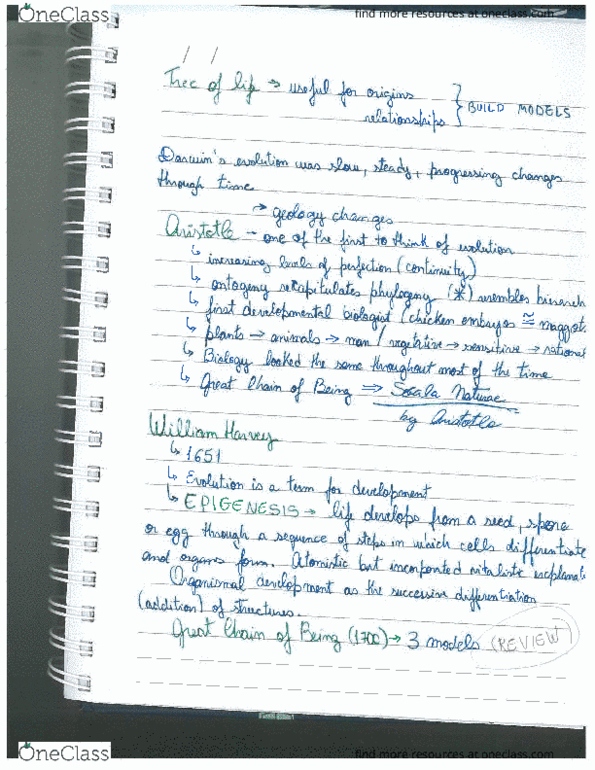 OneClass
find more resources at oneclass.com
/ /
Tree of life → useful for origins
relationships } BUILD MODELS
Darwin's evolution was slow, steady, progressing changes
through time
→ geology changes
Aristotle - one of the first to think of evolution
↳ increasing levels of perfection (continuity)
↳ ontogeny recapitulates phylogeny (*) resembles hierarch
↳ first developmental biologist (chicken embryos ≅ maggots
↳ plants → animals → man / vegetitive → sensitive → rational
↳ Biology looked the same throughout most of the time
↳ Great Chain of Being ⇒ Scala Naturae
by Aristotle
William Harvey
↳ 1651
↳ Evolution is a term for development
↳ EPIGENESIS → life develops from a seed, spore
or egg through a sequence of steps in which cells differentiate
and organs form. Atomistic but incorporated vitalistic
Organismal development as the successive differentiation
(addition) of structures.
Great Chain of Being (1700) → 3 models (REVIEW)
OneClass
find more resources at oneclass.com